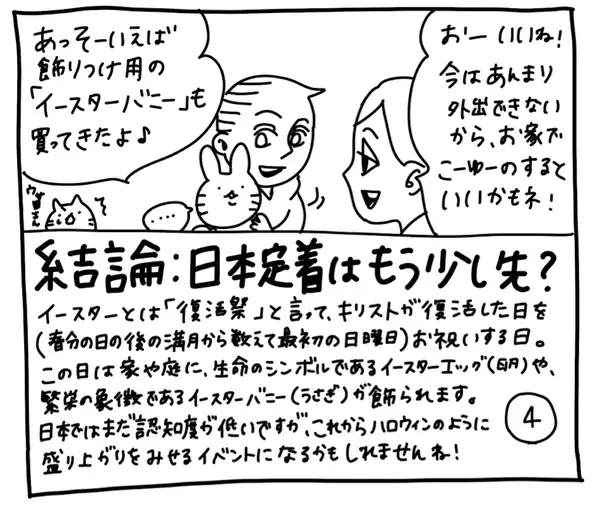 おーいいね!
今はあんまり
外出できない
から、お家で
こーゆーのすると
いいかもネ!
あっそーいえば
飾りつけ用の
「イースターバニー」も
買ってきたよ♪
結論:日本定着はもう少し先?
イースターとは「復活祭」と言って、キリストが復活した日を
(春分の日の後の満月から数えて最初の日曜日)お祝いする日。
この日は家や庭に、生命のシンボルであるイースターエッグ(卵)や、
繁栄の象徴であるイースターバニー(うさぎ)が飾られます。
日本ではまだ認知度が低いですが、これからハロウィンのように
盛り上がりをみせるイベントになるかもしれませんね!
4